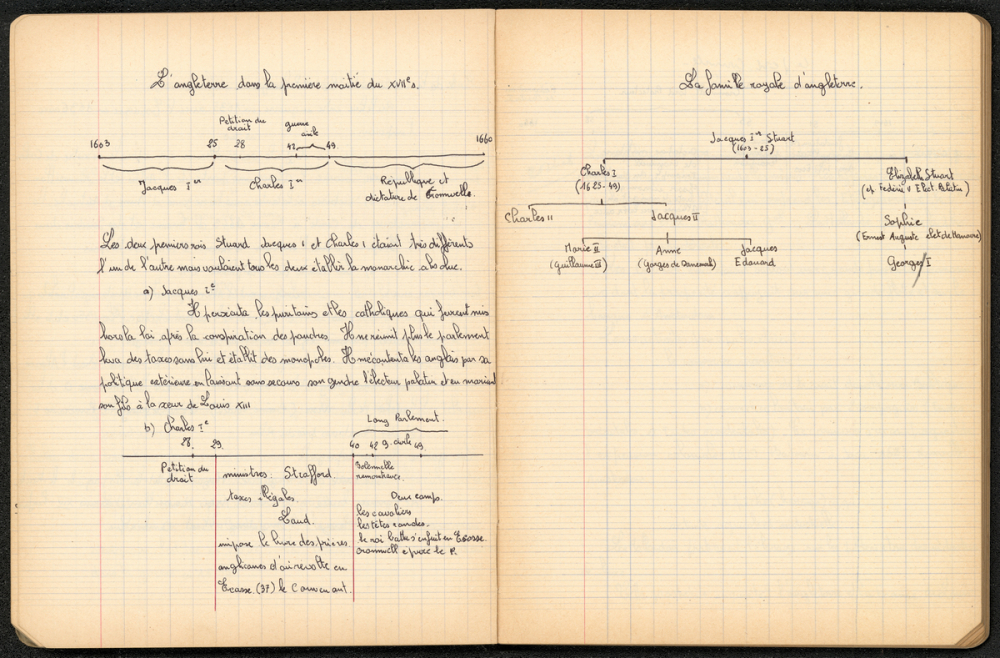 L'angleterre dans la première moitié du XVIIe s.
Pétition du droit
guerre civile
1603 25 28 42 49 1660
Jacques Ier
Charles Ier
République et
dictature de Cromwell.
Les deux premiers rois Stuard Jacques I et Charles I étaient très différents
l'un de l'autre mais voulaient tous les deux établir la monarchie absolue.
a) Jacques Ier
Il persécuta les puritains et les catholiques qui furent mis
hors la loi après la conspiration des poudres. Il ne réunit plus le parlement
leva des taxes sans lui et établit des monopoles. Il mécontenta les anglais par sa
politique extérieure en laissant sans secours son gendre l'électeur palatin et en mariant
son fils à la sœur de Louis XIII
b) Charles Ier
Long Parlement.
28 29 40 42 g. civile 49
Pétition du
droit
ministres. Strafford
taxes illégales
Laud.
impose le livre des prières
anglicanes d'où révolte en
Ecosse (37) le Covenant.
Solennelle
remontrance.
Deux camps.
les cavaliers
les têtes rondes.
le roi battu s'enfuit en Ecosse.
cromwell épure le P.
La famille royale d'angleterre.
Jacques Ier Stuart
(1603-25)
Charles I
(1625-49)
Elizabeth Stuart
(ep Fédéric V Elect. Palatin)
Charles II
Jacques II
Sophie
(Ernest Auguste elect de Hanovre)
Marie II
(Guillaume III)
Anne
(Georges de Danemark)
Jacques
Edouard
Georges I